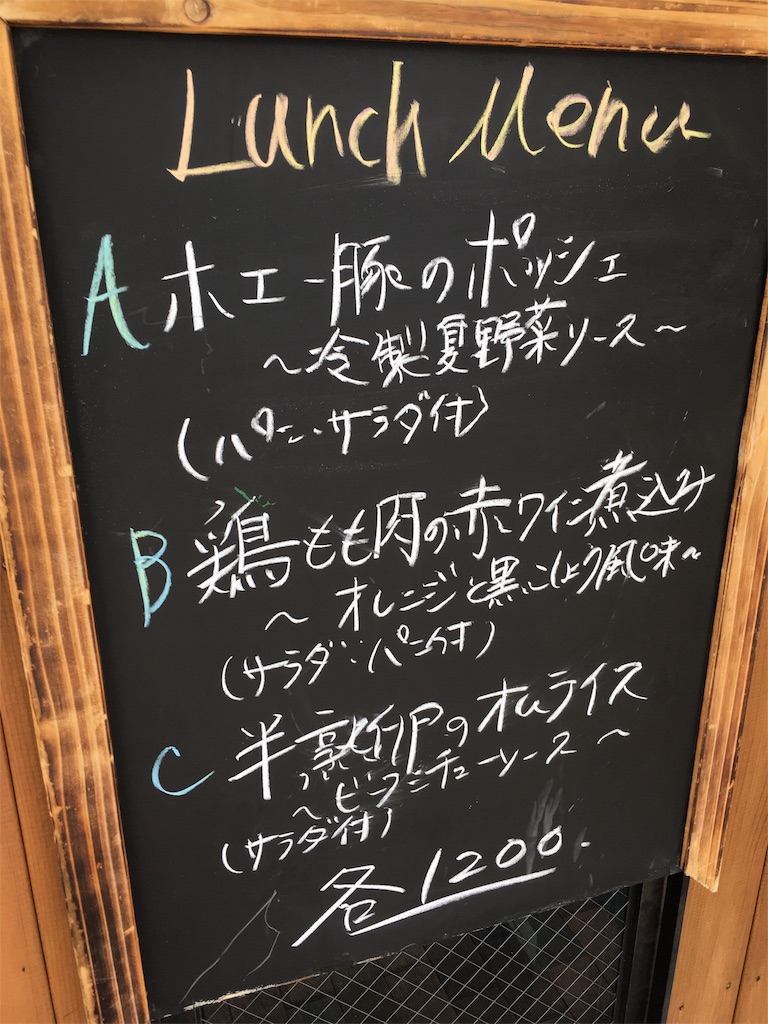 Lunch Menu
A ホエー豚のポッシェ
～冷製夏野菜ソース～
(パン・サラダ付)
B 鶏もも肉の赤ワイン煮込み
～オレンジと黒こしょう風味～
(サラダ・パン付)
C 半熟卵のオムライス
～ビーフシチューソース～
(サラダ付)
各1200.